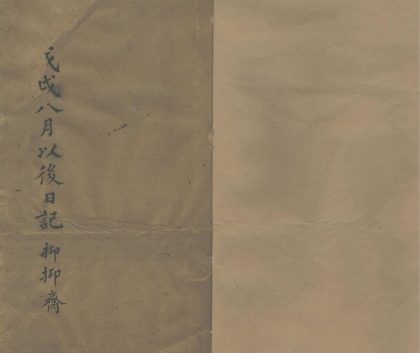 戊戌八月以後日記 抑抑齋